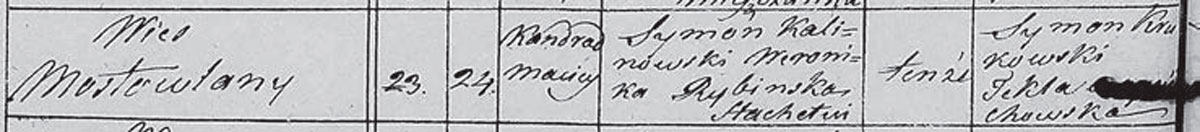 Wies
Mostowlany
23.
24.
Kandrad
Maciey
Symon Kali=
nowski Weroni=
ka Rybinska
Szlachetni
tenże
Symon Kru
kowski
Tekla
chowska